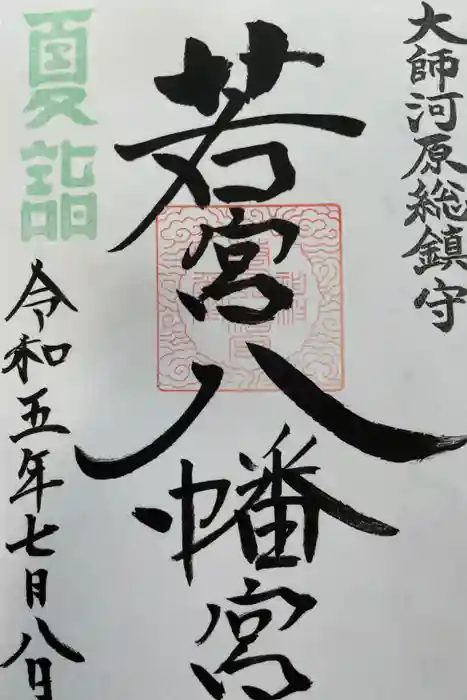 大師河原総鎮守
若宮八幡宮
夏詣
令和五年七月八日